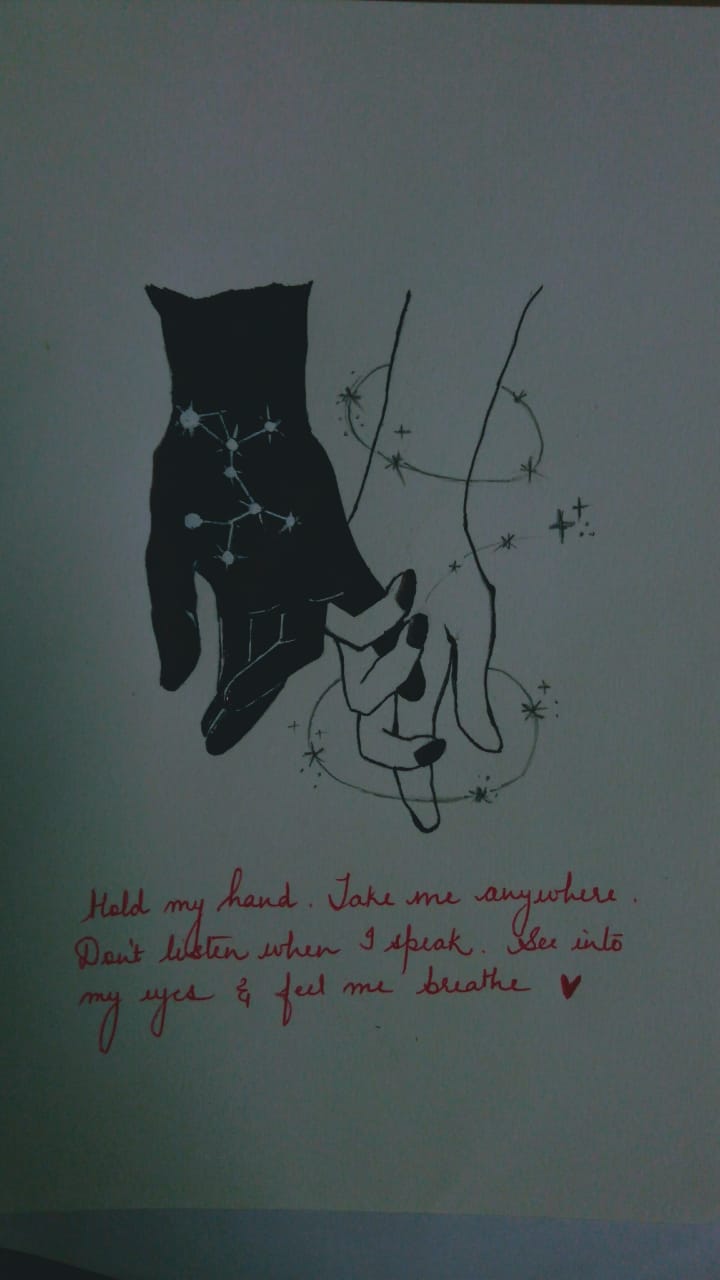 Hold my hand. Take me anywhere.
Don't listen when I speak. See into
my eyes & feel me breathe ♥